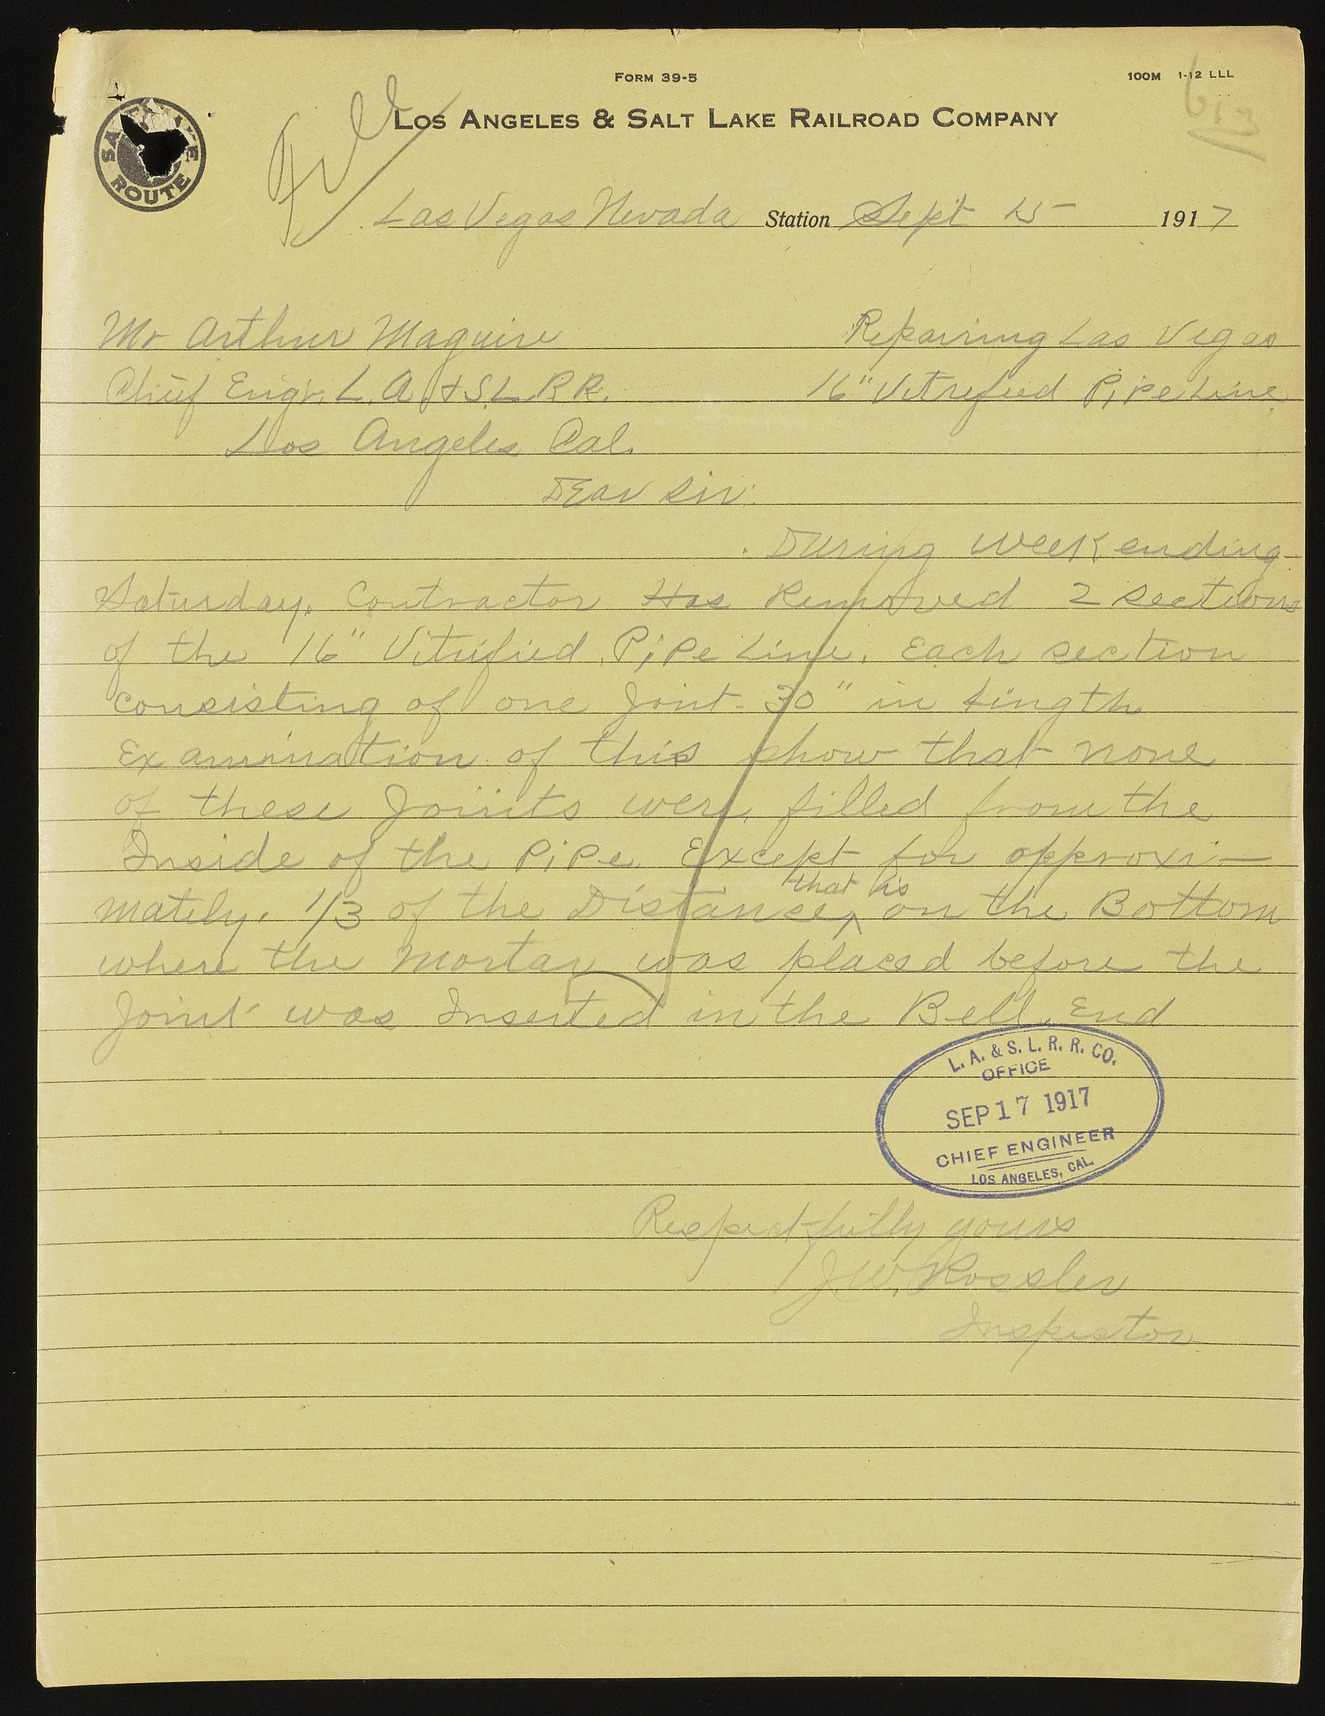 FORM 39-5
100M 1-12 LLL
613
LOS ANGELES & SALT LAKE RAILROAD COMPANY
File
ROUTE
Las Vegas Nevada Station Sept 15 1917
Mr Arthur Maguire
Repairing Las Vegas
Chief Engr. L.A. & S.L. R.R.
16" Vitrefied Pipe Line
Los Angeles Cal.
Dear Sir:
During week ending
Saturday. Contractor Has Removed 2 sections
of the 16" Vitrified Pipe Line. Each section
consisting of one Joint - 30" in Length
Examination of this show that none
of these Joints were filled from the
Inside of the Pipe. Except for approxi-
mately. 1/3 of the Distance, that is on the Bottom
where the Mortar was placed before the
Joint was Inserted in the Bell End
L. A. & S. L. R. R. CO.
OFFICE
SEP 17 1917
CHIEF ENGINEER
LOS ANGELES, CAL.
Respectfully yours
J.W. Rossler
Inspector